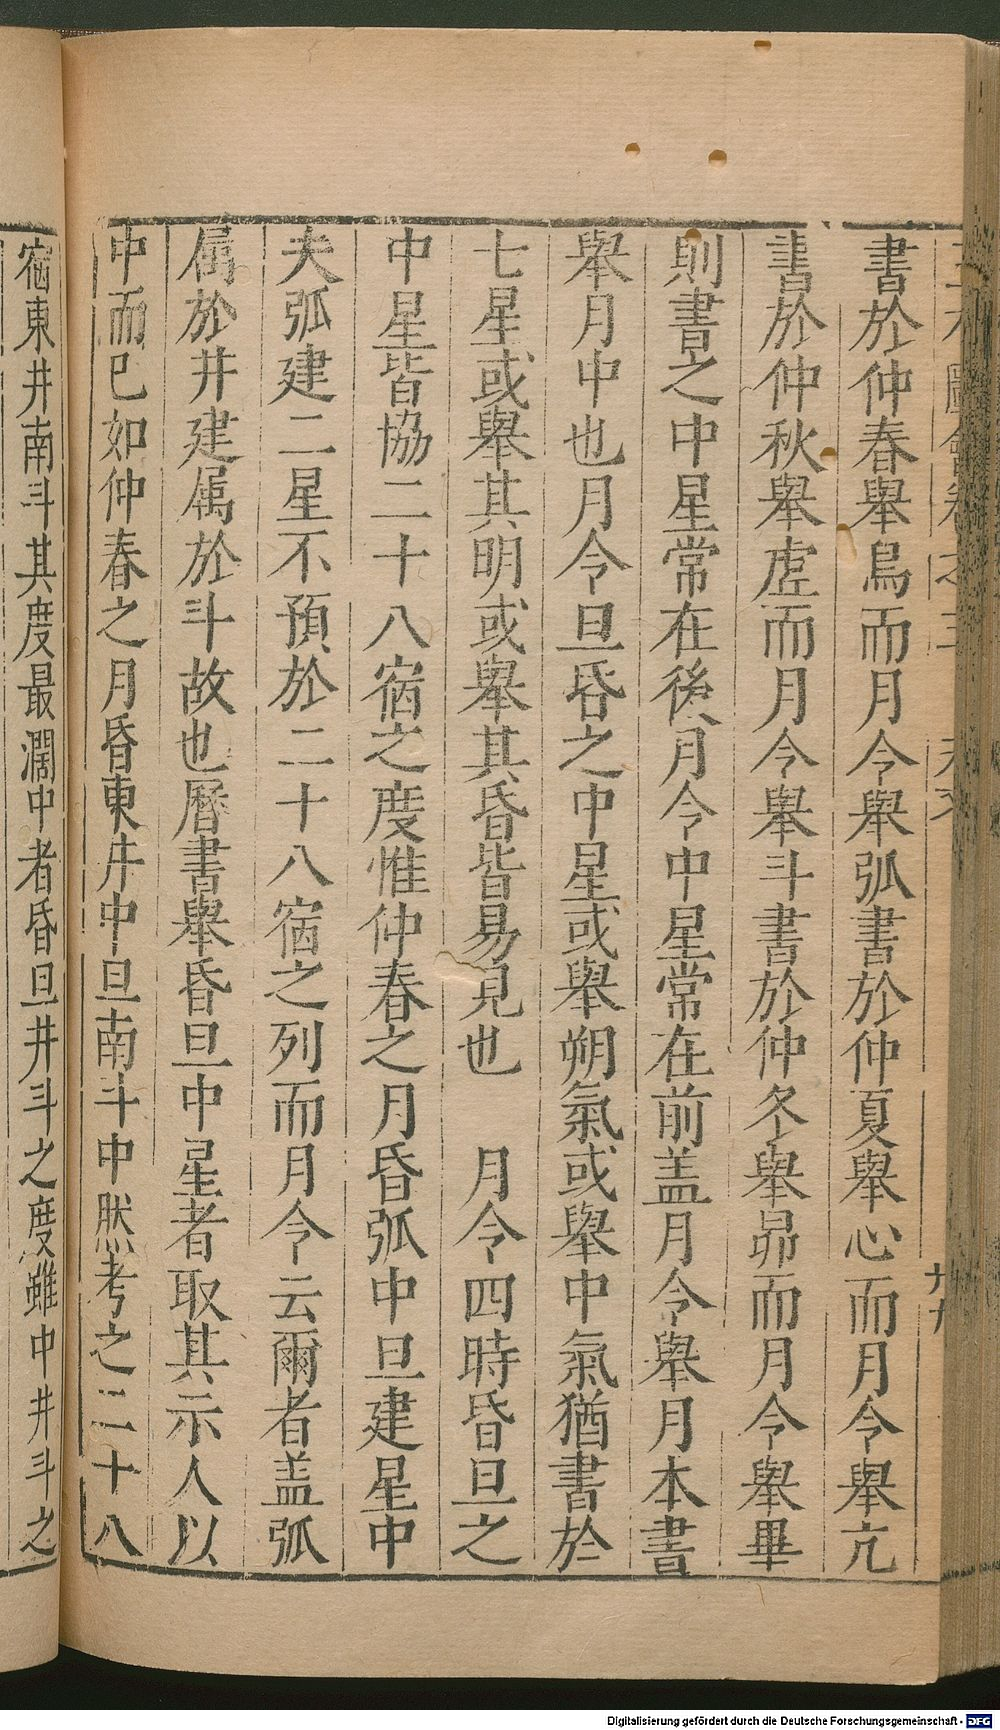 圖會卷之三 天文 十九
書於仲春舉鳥而月令舉弧書於仲夏舉心而月令舉亢
書於仲秋舉虛而月令舉斗書於仲冬舉昴而月令舉畢
則書之中星常在後月令中星常在前盖月令舉月本書
舉月中也月令旦昏之中星或舉朔氣或舉中氣猶書於
七星或舉其明或舉其昏皆易見也　月令四時昏旦之
中星皆協二十八宿之度惟仲春之月昏弧中旦建星中
夫弧建二星不預於二十八宿之列而月令云爾者盖弧
属於井建属於斗故也曆書舉昏旦中星者取其示人以
中而已如仲春之月昏東井中旦南斗中然考之二十八
宿東井南斗其度最濶中者昏旦井斗之度雖中井斗之
Digitalisierung gefördert durch die Deutsche Forschungsgemeinschaft - DFG